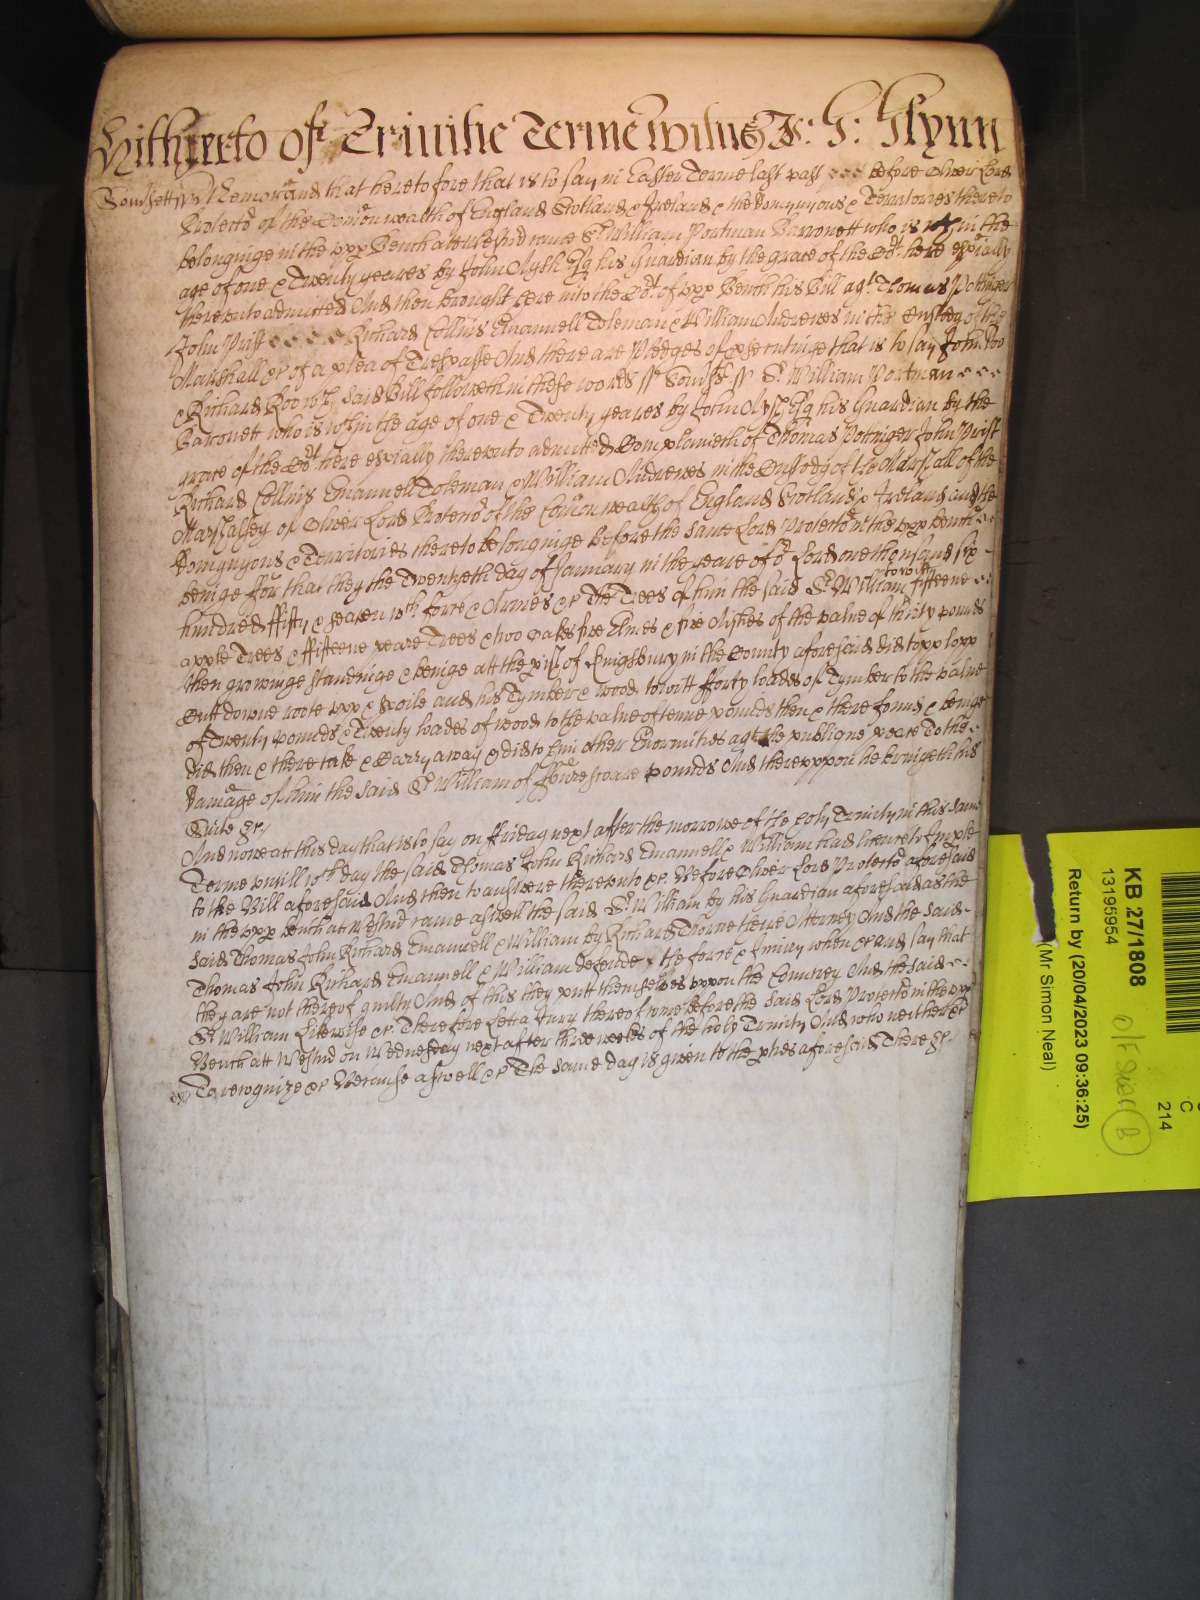 Hitherto of Trinitie Terme Witnes J: G: Glynn
Som̃sett ss Memorand that heretofore that is to say in Easter Terme last past before Oliver Lord
Protector of the Com̃on wealth of England Scotland & Ireland & the Domynyons & Territories thereto
belonginge in the upp Bench att Westmr came Sr William Portman Barronett who is wthin the
age of one & Twenty yeares by John Clysh Esq his Guardian by the grace of the Cot. here espially
thereunto admitted And then brought here into the Cot. of upp Bench his Bill agt. Thomas Pottinger
John Prist Richard Collins Emanuell Coleman & William Andrewes in the Custody of the
Marshall &c of a plea of Trespasse And there are Pledges of psecutinge that is to say John Doo
& Richard Roo wch said Bill followeth in these words ss Som̃st. ss Sr. William Portman
Barronett who is wthin the age of one & Twenty yeares by John Clysh Esq his Guardian by the
grace of the Cot. here espially thereunto admitted Complaineth of Thomas Pottinger John Prist
Richard Collins Emanuell Coleman & William Andrewes in the Custody of the Marshall of the
Marshalsey of Oliver Lord Protector of the Com̃on wealth of England Scotland & Ireland and the
Domynyons & Territories thereto belonginge before the same Lord Protector in the upp Bench
beinge ffor that they the Twentyeth day of January in the yeare of or Lord one thousand six
hundred ffifty & seaven wth force & Armes &c The Trees of him the said Sr. William to witt fifteene
apple Trees & ffifteene peare Trees & two Oakes five Elmes & five Ashes of the value of thirty pounds
then growinge standinge & beinge att the pish of Kingsbury in the County aforesaid did topp lopp
Cutt downe roote upp & spoile and his Tymber & wood to witt fforty loades of Tymber to the value
of Twenty pounds & Twenty loades of wood to the value of tenne pounds then & there found & beinge
did then & there take & Carry away & did to him other Enormities agt the publique peace To the
damage of him the said Sr. William of ffoure scoare pounds And thereuppon he bringeth his
Suite &c
And now att this day that is to say on Friday next after the morrowe of the holy Trinity in this same
Terme untill wch day the said Thomas John Richard Emanuell & William had licence to Imple
to the Bill aforesaid And then to answere thereunto &c. Before Oliver Lord Protector aforesaid
in the upp bench at Westmr came aswell the said Sr. William by his Guardian aforesaid as the
said Thomas John Richard Emanuell & William by Richard Thorne theire Attorney And the said
Thomas John Richard Emanuell & William defende the force & Iniury when &c and say that
they are not thereof guilty And of this they putt themselves uppon the Countrey And the said
Sr William Likewise &c. Therefore Let a Jury thereof come before the said Lord Protector in the upp
Bench att Westmr on Wednesday next after three weekes of the holy Trinity And who neither &c
To recognize &c Because aswell &c The same day is given to the pties aforesaid There &c.
KB 27/1808
13195954
Return by (20/04/2023 09:36:25)
(Mr Simon Neal)
C
214
B